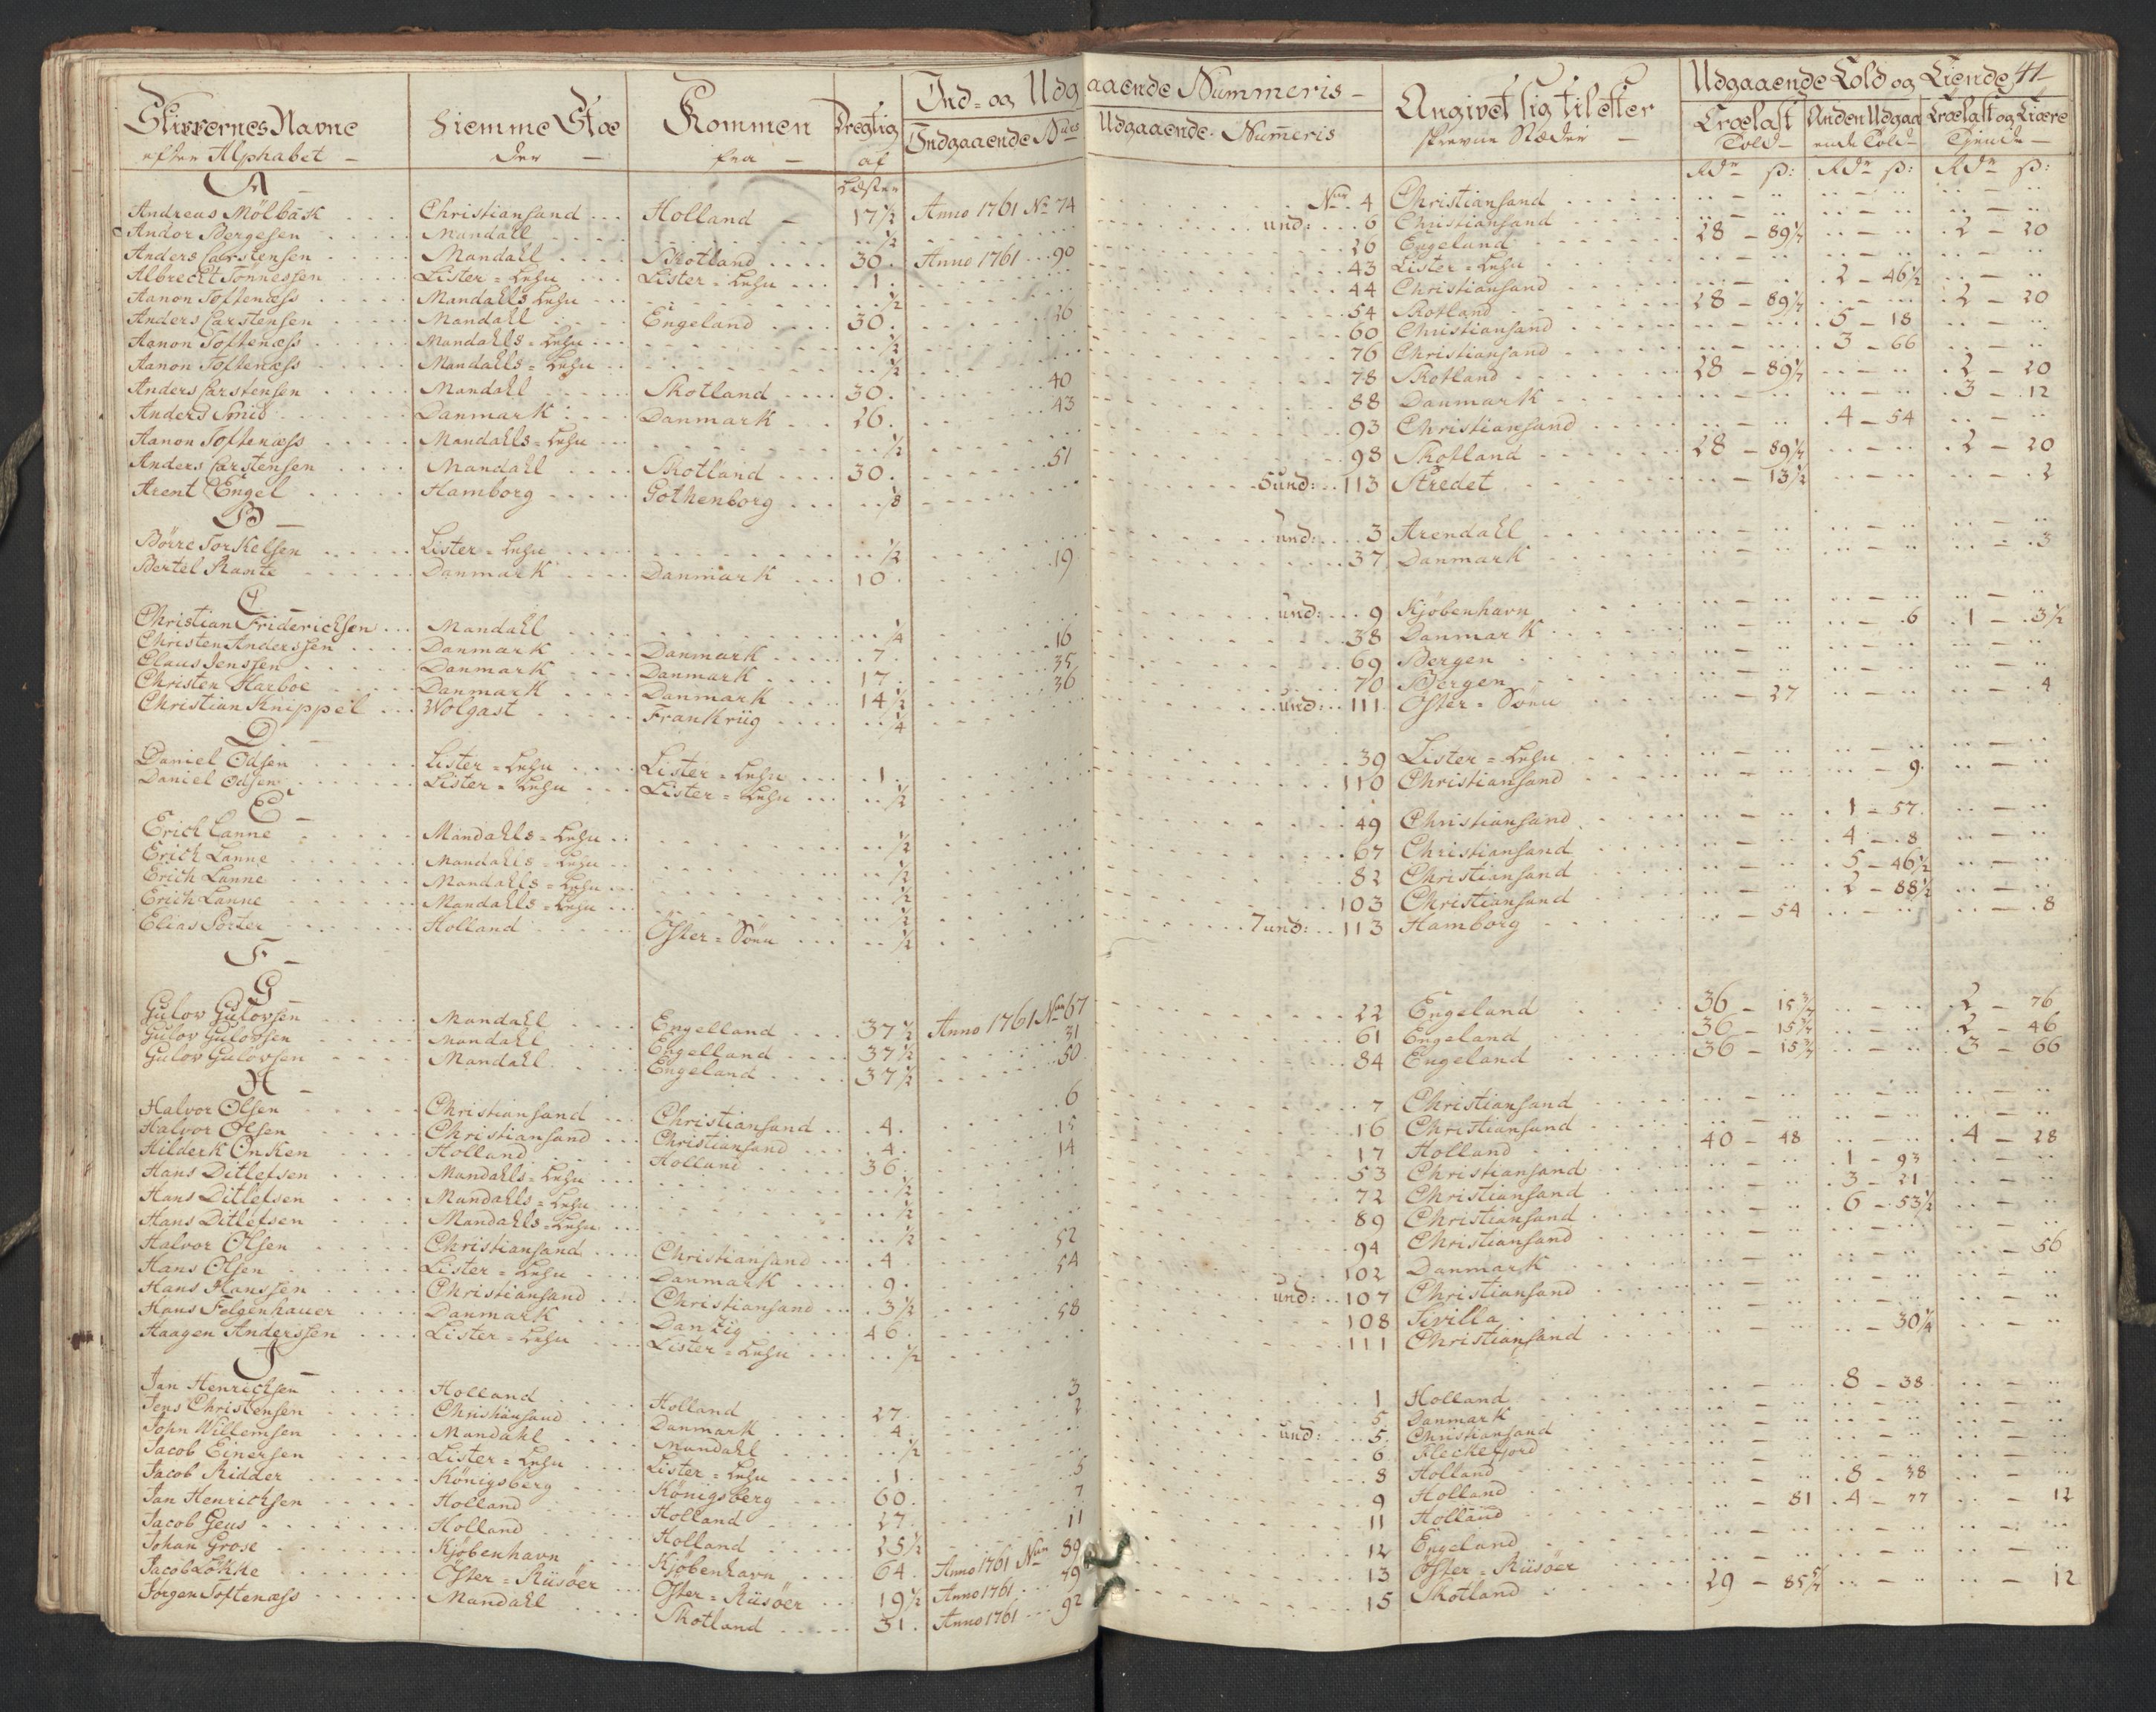 Skippernes Navne efter Alphabet — Hiemme Stæder — Kommen fra — Dregtig af Læster Ind- og Udgaaende Nummeris — Angivet sig til efterskrevne Stæder — Udgaaende Told og Tiende 41
Indgaaende Nris Udgaaende Numeris Trælast Told Anden Udgaaende Told Trælast og Tiære Tiende
Rdr ß: Rdr ß: Rdr ß:
A —
Andreas Mölbak Christiansand Holland — 17½ Anno 1761 No 74 Nr. 4 Christiansand
Andor Bergesen Mandall ½ und: 6 Christiansand
Anders Carstensen Mandall Skotland 30 Anno 1761 90 26 Engeland 28 - 89¼ 2 - 20
Albrecht Tonnessen Lister-Lehn Lister-Lehn 1 43 Lister-Lehn
Aanon Toftenæss Mandalls Lehn ½ 44 Christiansand 2 - 46½
Anders Carstensen Mandall Engeland 30 26 54 Skotland 28 - 89¼ 2 - 20
Aanon Toftenæss Mandalls-Lehn ½ 60 Christiansand 5 - 18
Aanon Toftenæss Mandalls-Lehn ½ 76 Christiansand 3 - 66
Anders Carstensen Mandall Skotland 30 40 78 Skotland 28 - 89¼ 2 - 20
Anders Smid Danmark Danmark 26 43 88 Danmark 3 - 12
Aanon Toftenæss Mandahls-Lehn ½ 93 Christiansand 4 - 54
Anders Carstensen Mandahl Skotland 30 51 98 Skotland 28 - 89¼ 2 - 20
Arent Engel Hamborg Gothenborg 8 5 und: 113 Stredet 13½ 2
B —
Börre Torkelsen Lister-Lehn ½ und: 3 Arendall
Bertel Rante Danmark Danmark 10 19 37 Danmark 3
C —
Christian Friderichsen Mandahl ¼ und: 9 Kjøbenhavn
Christen Anderssen Danmark Danmark 7 16 38 Danmark 6 1 - 3½
Claus Jenssen Danmark Danmark 17 35 69 Bergen
Christen Harboe Danmark Danmark 14½ 36 70 Bergen
Christian Knippel Wolgast Frankrüg ¼ und: 111 Öster-Söen 27 4
D —
Daniel Odsen Lister-Lehn Lister-Lehn 1 39 Lister-Lehn
Daniel Odsen Lister-Lehn Lister-Lehn ½ 110 Christiansand 9
E —
Erich Lanne Mandahls-Lehn ½ 49 Christiansand 1 - 57
Erich Lanne Mandahls-Lehn ½ 67 Christiansand 4 - 8
Erich Lanne Mandahls-Lehn ½ 82 Christiansand 5 - 46½
Erich Lanne Mandahls-Lehn ½ 103 Christiansand 2 - 88½
Elias Porter Holland Öster-Söen ½ 7 und: 113 Hamborg 54 8
F —
G —
Gulov Gulovsen Mandall Engelland 37½ Anno 1761 Nr 67 22 Engeland 36 - 15¾ 2 - 76
Gulov Gulovsen Mandall Engelland 37½ 31 61 Engeland 36 - 15¾ 2 - 46
Gulov Gulovsen Mandall Engeland 37½ 50 84 Engeland 36 - 15¾ 3 - 66
H —
Halvor Olsen Christiansand Christiansand 4 6 7 Christiansand
Halvor Olsen Christiansand Christiansand 4 15 16 Christiansand
Hilderk Onken Holland Holland 36 14 17 Holland 40 - 48 4 - 28
Hans Ditlefsen Mandahls-Lehn ½ 53 Christiansand 1 - 93
Hans Ditlefsen Mandahls-Lehn ½ 72 Christiansand 3 - 21
Hans Ditlefsen Mandahls-Lehn ½ 89 Christiansand 6 - 53½
Halvor Olsen Christiansand Christiansand 4 52 94 Christiansand
Hans Olsen Lister-Lehn Danmark 9 54 102 Danmark 56
Hans Hanssen Christiansand Christiansand 3½ und: 107 Christiansand
Hans Felgenhauer Danmark Danzig 46 58 108 Sivilla
Haagen Anderssen Lister-Lehn Lister-Lehn ½ 111 Christiansand 30¼
J —
Jan Henrichsen Holland Holland 27 3 1 Holland 8 - 38
Jens Christensen Christiansand Danmark 4 2 5 Danmark
John Willemsen Mandahl Mandahl ½ und: 5 Christiansand
Jacob Einersen Lister-Lehn Lister-Lehn 1 6 Fleckefjord
Jacob Ridder Königsberg Königsberg 60 5 8 Holland
Jan Henrichsen Holland Holland 27 7 9 Holland 8 - 38
Jacob Geus Holland Holland 25½ 11 11 Holland 81 4 - 77 12
Johan Grose Kjöbenhavn Kjöbenhavn 64 Anno 1761 Nr 89 12 Engeland
Jacob Lökke Öster-Riisöer Öster-Riisöer 19½ Anno 1761 59 13 Öster-Riisöer
Jörgen Toftenæss Mandahl Skotland 31 Anno 1761 92 15 Skotland 29 - 85 5/7 12